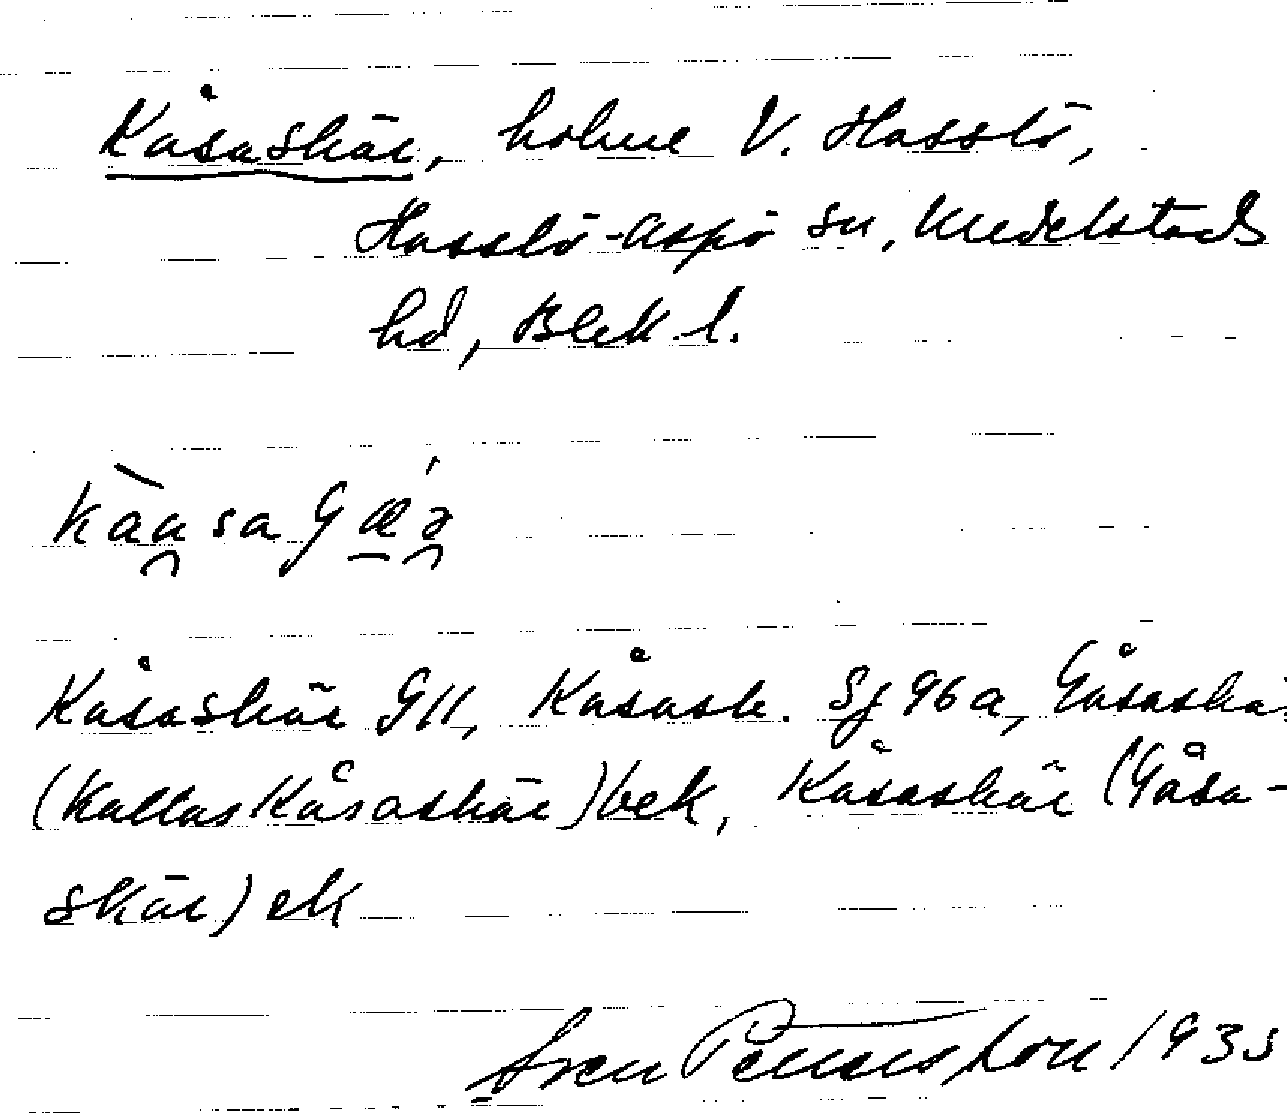 Kåsaskär, holme V. Hasslö,
Hasslö-Aspö sn, Medelstads
hd, Blek. l.
Kåsaskär G11, Kåsask. Sj 96a, Gåsaskä
(Kallas Kåsaskär) bek, Kåsaskär (Gåsa-
skär) ek
Sven Petersson 1935